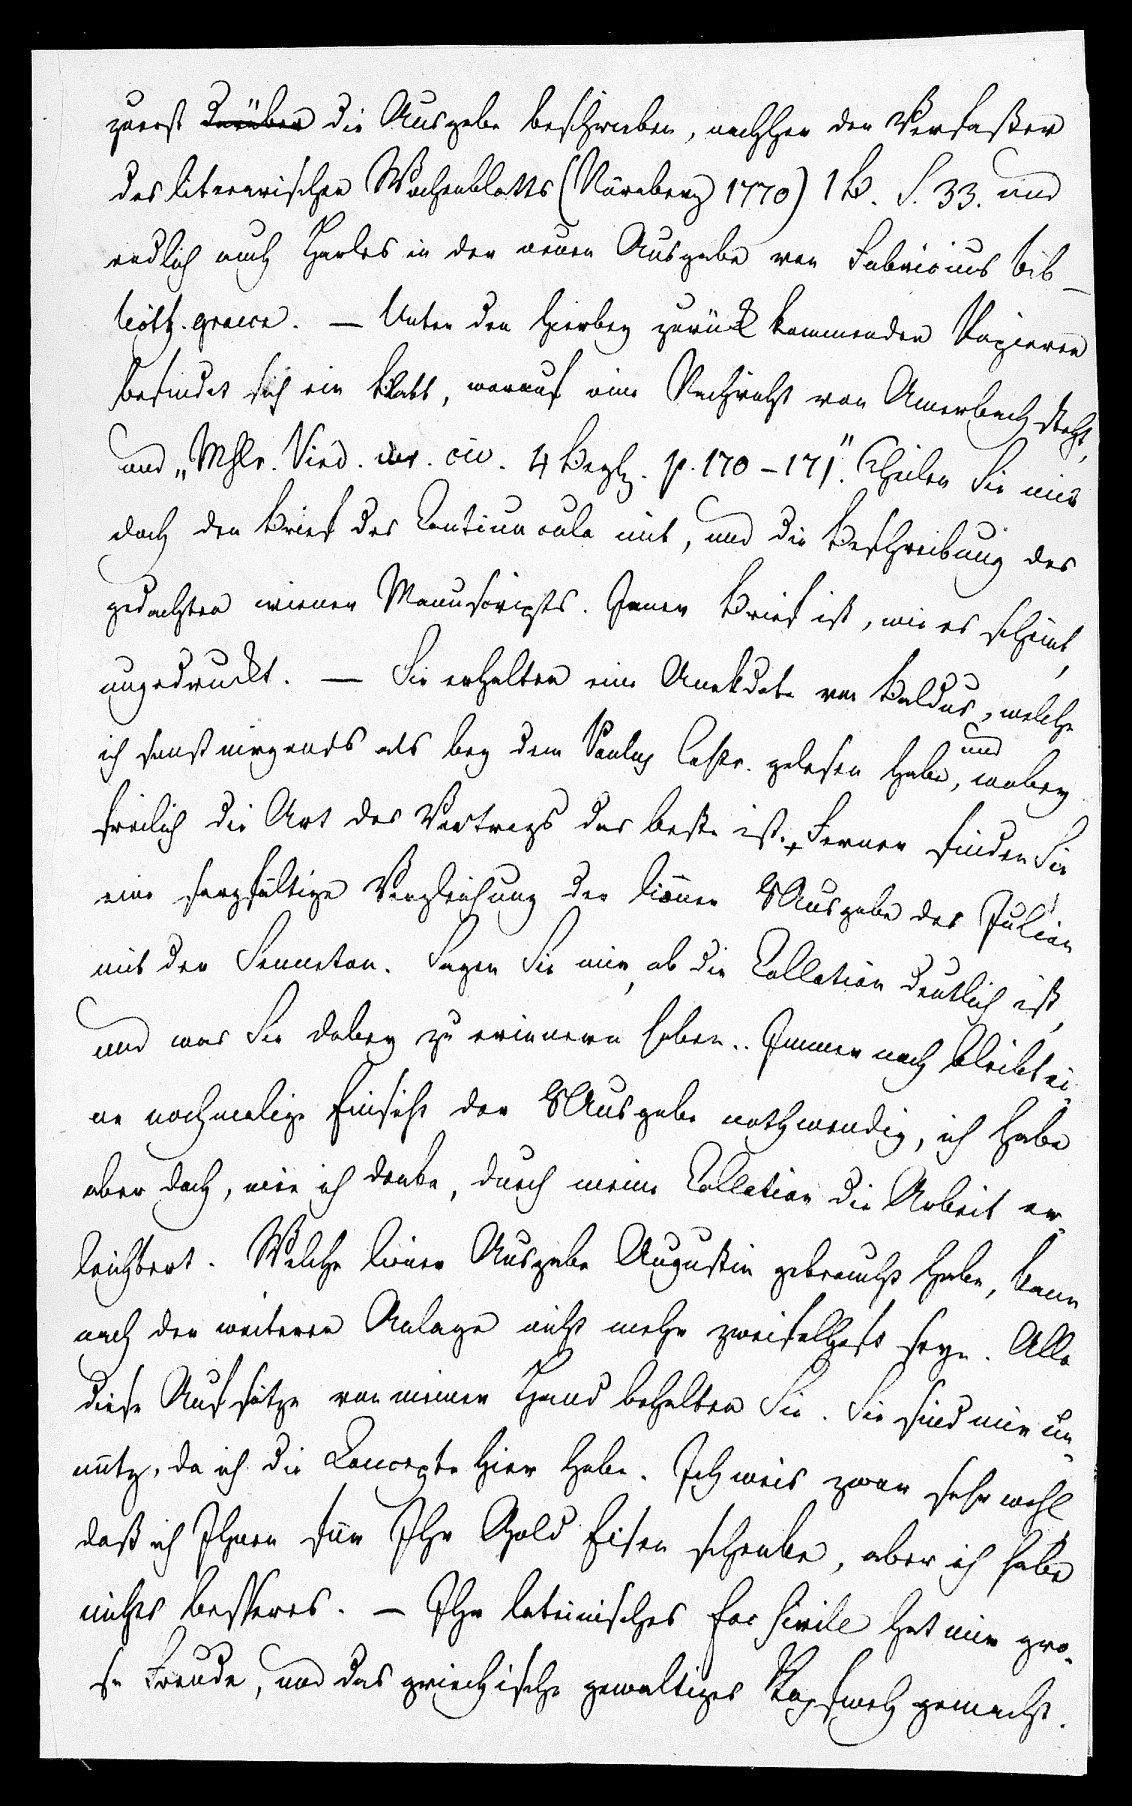 zuerst darüber die Ausgabe beschrieben, nachher der Verfaßer
des literarischen Wochenblatts (Nürnberg 1770) 1 B. S. 33. und
endlich auch Harles in der neuen Ausgabe von Fabricius bib-
lioth. graeca. — Unter den hierbey zurück kommenden Papieren
befindet sich ein Blatt, worauf eine Nachricht von Amerbach steht,
und „Mssr. Vind. iur. civ. 4 Begl. p. 170 – 171". Theilen Sie mir
doch den Brief des Cantiuncula mit, und die Beschreibung des
gedachten wiener Manuscripts. Jener Brief ist, wie es scheint,
ungedruckt. — Sie erhalten eine Anekdote von Baldus, welche
ich sonst nirgends als bey dem Paulus Castr. gelesen habe, und wobey
freilich die Art des Vortrags das beste ist. Ferner finden Sie
eine sorgfältige Vergleichung der lioner Ausgabe des Julian
mit der Senneton. Sagen Sie mir, ob die Collation deutlich ist,
und was Sie dabey zu erinnern haben.. Immer noch bleibt ei-
ne nochmalige Einsicht der Ausgabe nothwendig, ich habe
aber doch, wie ich denke, durch meine Collation die Arbeit er-
leichtert. Welche lioner Ausgabe Augustin gebraucht habe, kann
nach der weiteren Anlage nicht mehr zweifelhaft seyn. Alle
diese Aufsätze von meiner Hand behalten Sie. Sie sind mir un-
nütz, da ich die Concepte hier habe. Ich weis zwar sehr wohl
daß ich Ihnen für Ihr Gold Eisen schenke, aber ich habe
nichts besseres. — Ihr lateinisches fac simile hat mir gro-
se Freude, und das griechische gewaltiges Kopfweh gemacht.